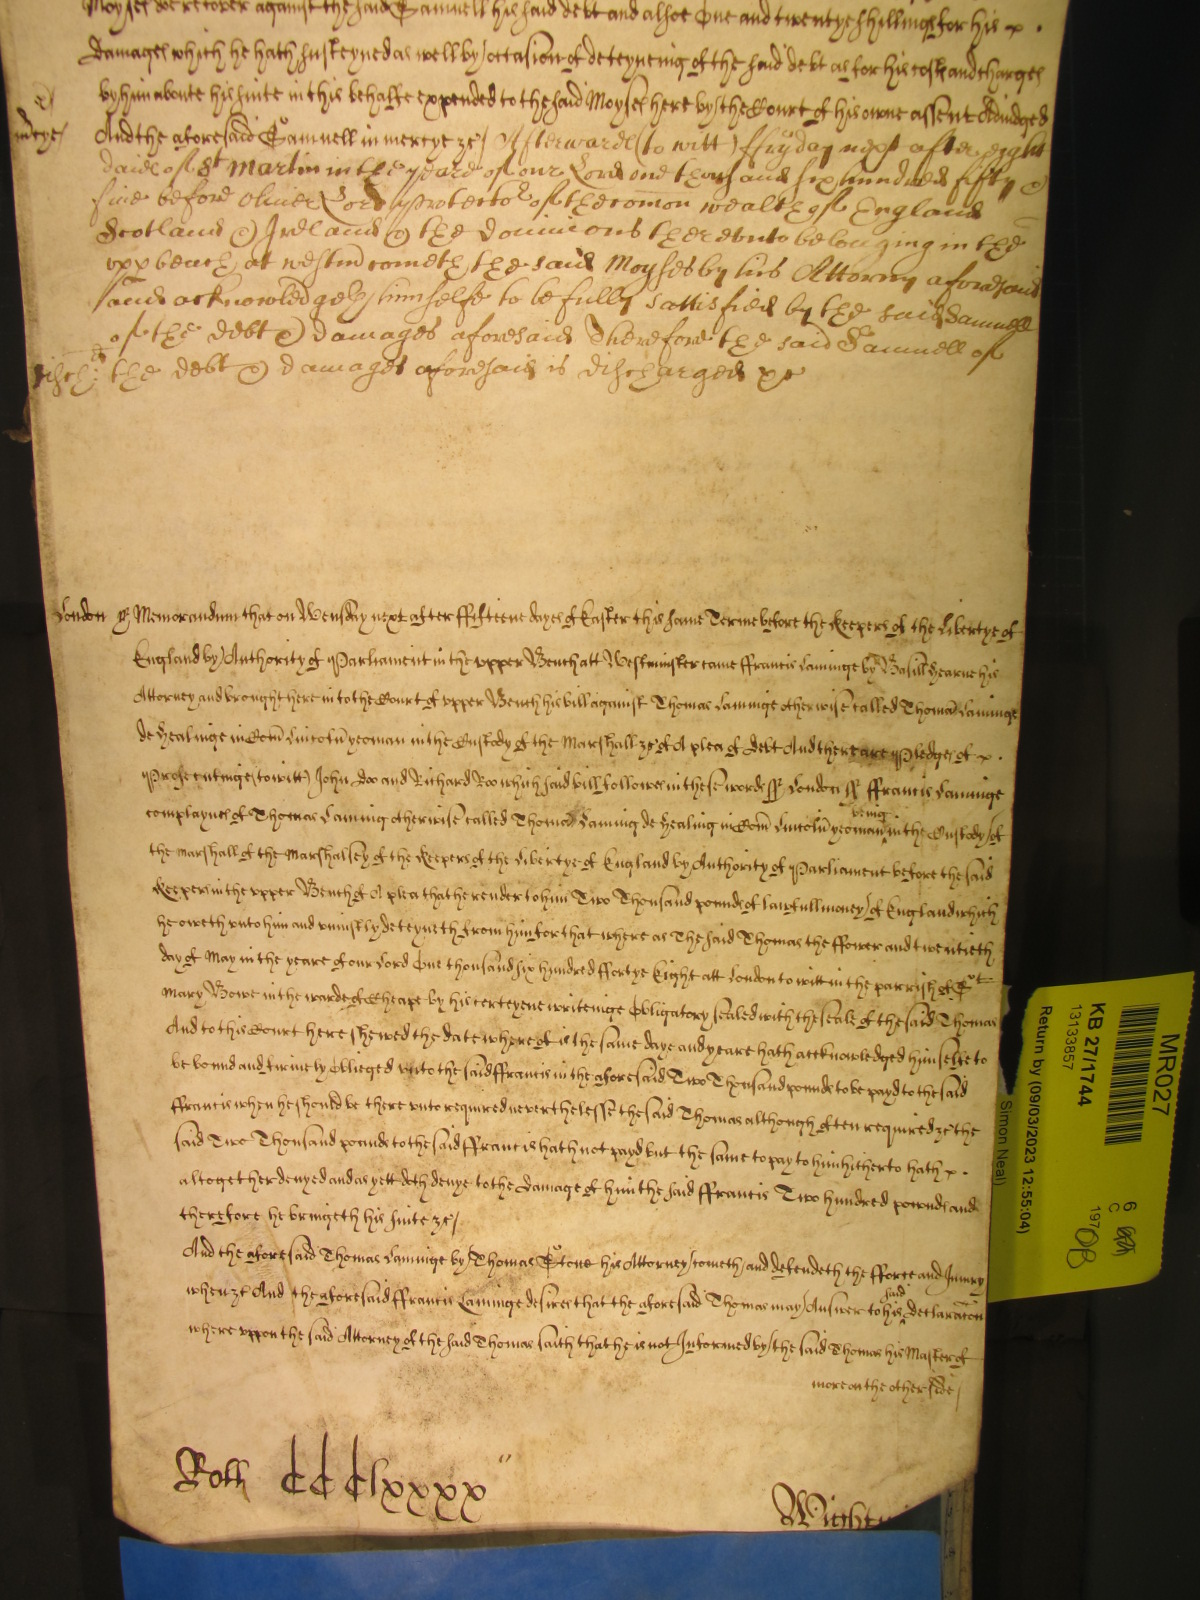 Moyses doe recover against the said Samuell his said debt and alsoe One and twentye shillings for his x .
damages which he hath susteyned as well by occasion of deteyneing of the said debt as for his costs and charges
by him aboute his suite in this behalfe expended to the said Moyses here by the Court of his owne assent Adiudged
And the aforesaid Samuell in mercye &c Afterwards (to witt) ffryday next after eight
daies of St Martin in the yeare of our Lord one thousand six hundred fifty &
five before Oliver Lord protector of the comon wealth of England
Scotland & Ireland & the dominions thereunto belonging in the
upp bench at westm cometh the said Moyses by his Attorny aforesaid
and acknowledgeth himselfe to be fully sattisfied by the said Samuell
of the debt & damages aforesaid Therefore the said Samuell of
disch: the debt & damages aforesaid is discharged &c
London ss Memorandum that on Wensday next after ffifteene dayes of Easter this same Terme before the Keepers of the Libertye of
England by Authority of Parliament in the upper Bench att Westminster came ffrancis Laminge by Basill Hearne his
Attorney and brought here into the Court of upper Bench his bill against Thomas Laminge otherwise called Thomas Laminge
de Healinge in Com Lincoln yeoman in the Custody of the Marshall &c of A plea of debt And there are Pledges of x .
Prosecutinge (to witt) John Doo and Richard Roo which said bill followes in these words ss London ss ffrancis Laminge
complaynes of Thomas Laming otherwise called Thomas Laming de Healing in Com Lincoln yeoman being in the Custody of
the Marshall of the Marshalsey of the Keepers of the Libertye of England by Authority of Parliament before the said
Keepers in the upper Bench of A plea that he render to him Two Thousand pounds of lawfull money of England which
he oweth unto him and uniustly deteyneth from him for that where as The said Thomas the ffower and twentieth
day of May in the yeare of our Lord One thousand six hundred ffortye Eight att London to witt in the parrish of St
Mary Bowe in the warde of Cheape by his certeyne writeinge Obligatory sealed with the seale of the said Thomas
And to this Court here shewed the date whereof is the same daye and yeare hath acknowledged himselfe to
be bound and firmely Oblieged unto the said ffrancis in the aforesaid Two Thousand pounds to be payd to the said
ffrancis when he should be there unto required nevertheless the said Thomas although often required &c the
said Two Thousand pounds to the said ffrancis hath not payd but the same to pay to him hitherto hath x .
altogether denyed and as yett doth denye to the damage of him the said ffrancis Two hundred pownds and
therefore he bringeth his suite &c
And the aforesaid Thomas Laminge by Thomas Stone his Attorney cometh and defendeth the fforce and Iniury
when &c And the aforesaid ffrancis Laminge desires that the aforesaid Thomas may Answer to his said declaracon
where uppon the said Attorney of the said Thomas saith that he is not Informed by the said Thomas his Master of
more on the other side
Roll CCClxxxx
Wight
MR027
KB 27/1744
13133857
Return by (09/03/2023 12:55:04)
Simon Neal)
6
C
197